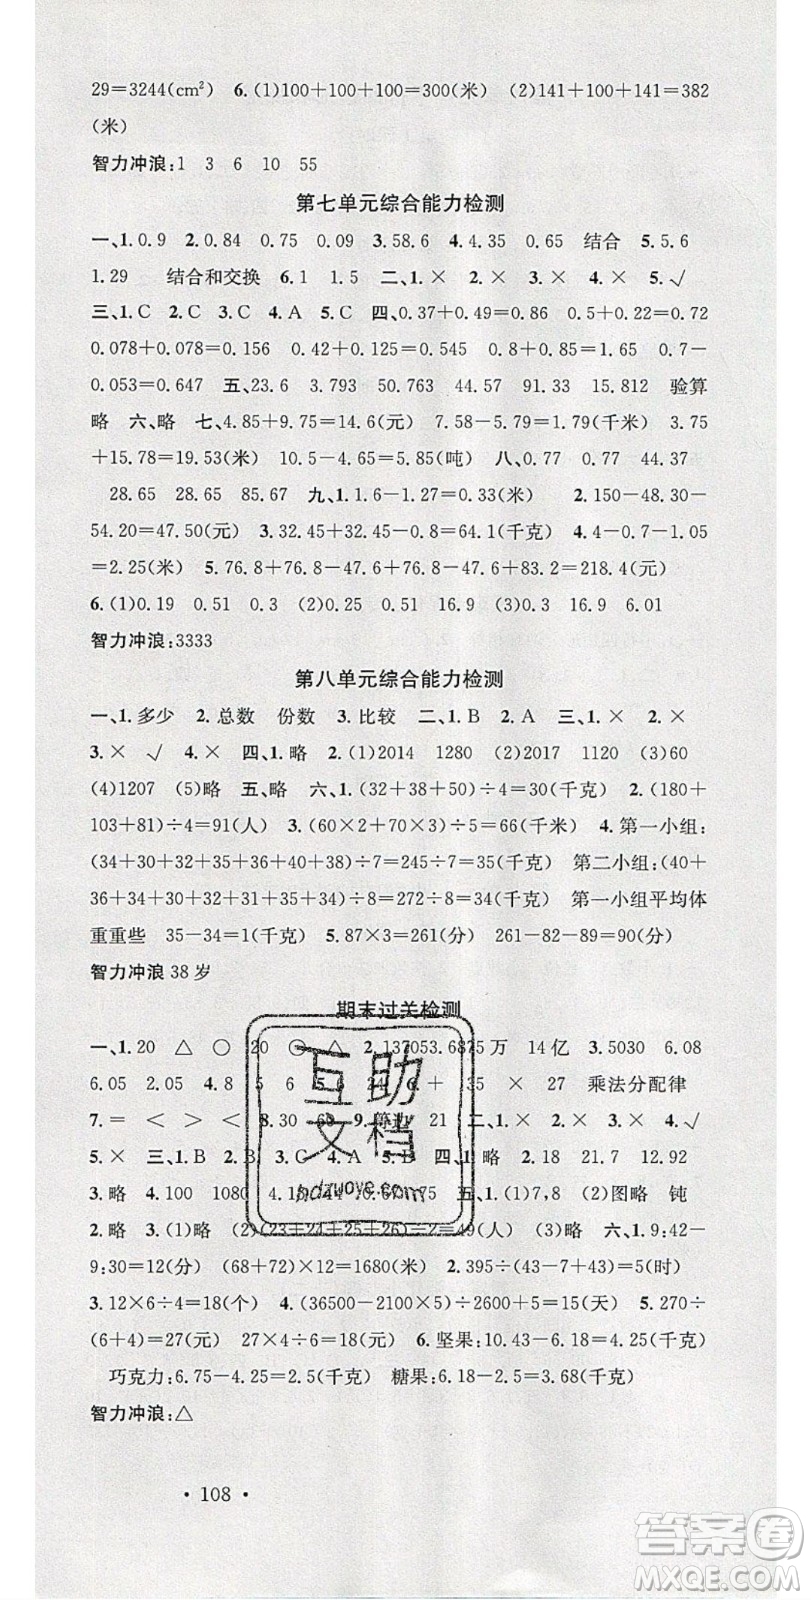 29=3244(cm²) 6.(1)100+100+100=300(米) (2)141+100+141=382
(米)
智力冲浪:1 3 6 10 55
第七单元综合能力检测
一、1.0.9 2.0.84 0.75 0.09 3.58.6 4.4.35 0.65 结合 5.5.6
1.29 结合和交换 6.1 1.5 二、1.× 2.× 3.× 4.× 5.√
三、1.C 2.C 3.C 4.A 5.C 四、0.37+0.49=0.86 0.5+0.22=0.72
0.078+0.078=0.156 0.42+0.125=0.545 0.8+0.85=1.65 0.7-
0.053=0.647 五、23.6 3.775 50.763 44.57 91.33 15.812 验算
略 六、略 七、4.85+9.75=14.6(元) 7.58-5.79=1.79(千米) 3.75
+15.78=19.53(米) 10.5-4.65=5.85(吨) 八、0.77 0.77 44.37
28.65 28.65 85.67 九、1.1.6-1.27=0.33(米) 2.150-48.30-
54.20=47.50(元) 3.32.45+32.45-0.8=64.1(千克) 4.4-0.7-1.05
=2.25(米) 5.76.8+76.8-47.6+76.8-47.6+83.2=218.4(元)
6.(1)0.19 0.51 0.3 (2)0.25 0.51 16.9 (3)16.9 6.01
智力冲浪:3333
第八单元综合能力检测
一、1.多少 2.总数 份数 3.比较 二、1.B 2.A 三、1.× 2.×
3.× √ 4.× 四、1.略 2.(1)2014 1280 (2)2017 1120 (3)60
(4)1207 (5)略 五、略 六、1.(32+38+50)÷4=30(千克) 2.(180+
103+81)÷4=91(人) 3.(60×2+70×3)÷5=66(千米) 4.第一小组:
(34+30+32+35+36+40+38)÷7=245÷7=35(千克) 第二小组:(40+
36+34+30+32+31+35+34)÷8=272÷8=34(千克) 第一小组平均体
重重些 35-34=1(千克) 5.87×3=261(分) 261-82-89=90(分)
智力冲浪38岁
期末过关检测
一、1.20 △ ○ 20 ○ △ 2.137053.6875万 14亿 3.5030 6.08
6.05 2.05 4.8 5 6 5. 24 6.+ 135 × 27 乘法分配律
7.= < > < 8.30 60 9. 21 二、1.× 2.× 3.× 4.√
5.× 三、1.B 2.B 3.C 4.A 5.B 四、1.略 2.18 21.7 12.92
3.略 4.100 1080 75 五、1.(1)7,8 (2)图略 钝
2.略 3.(1)略 (2)(23+24+25+26)÷2=49(人) (3)略 六、1.9:42-
9:30=12(分) (68+72)×12=1680(米) 2.395÷(43-7+43)=5(时)
3.12×6÷4=18(个) 4.(36500-2100×5)÷2600+5=15(天) 5.270÷
(6+4)=27(元) 27×4÷6=18(元) 6.坚果:10.43-6.18=4.25(千克)
巧克力:6.75-4.25=2.5(千克) 糖果:6.18-2.5=3.68(千克)
智力冲浪:△
· 108 ·
互助
文档
hdzuoye.com
答案圈
MXQE.COM